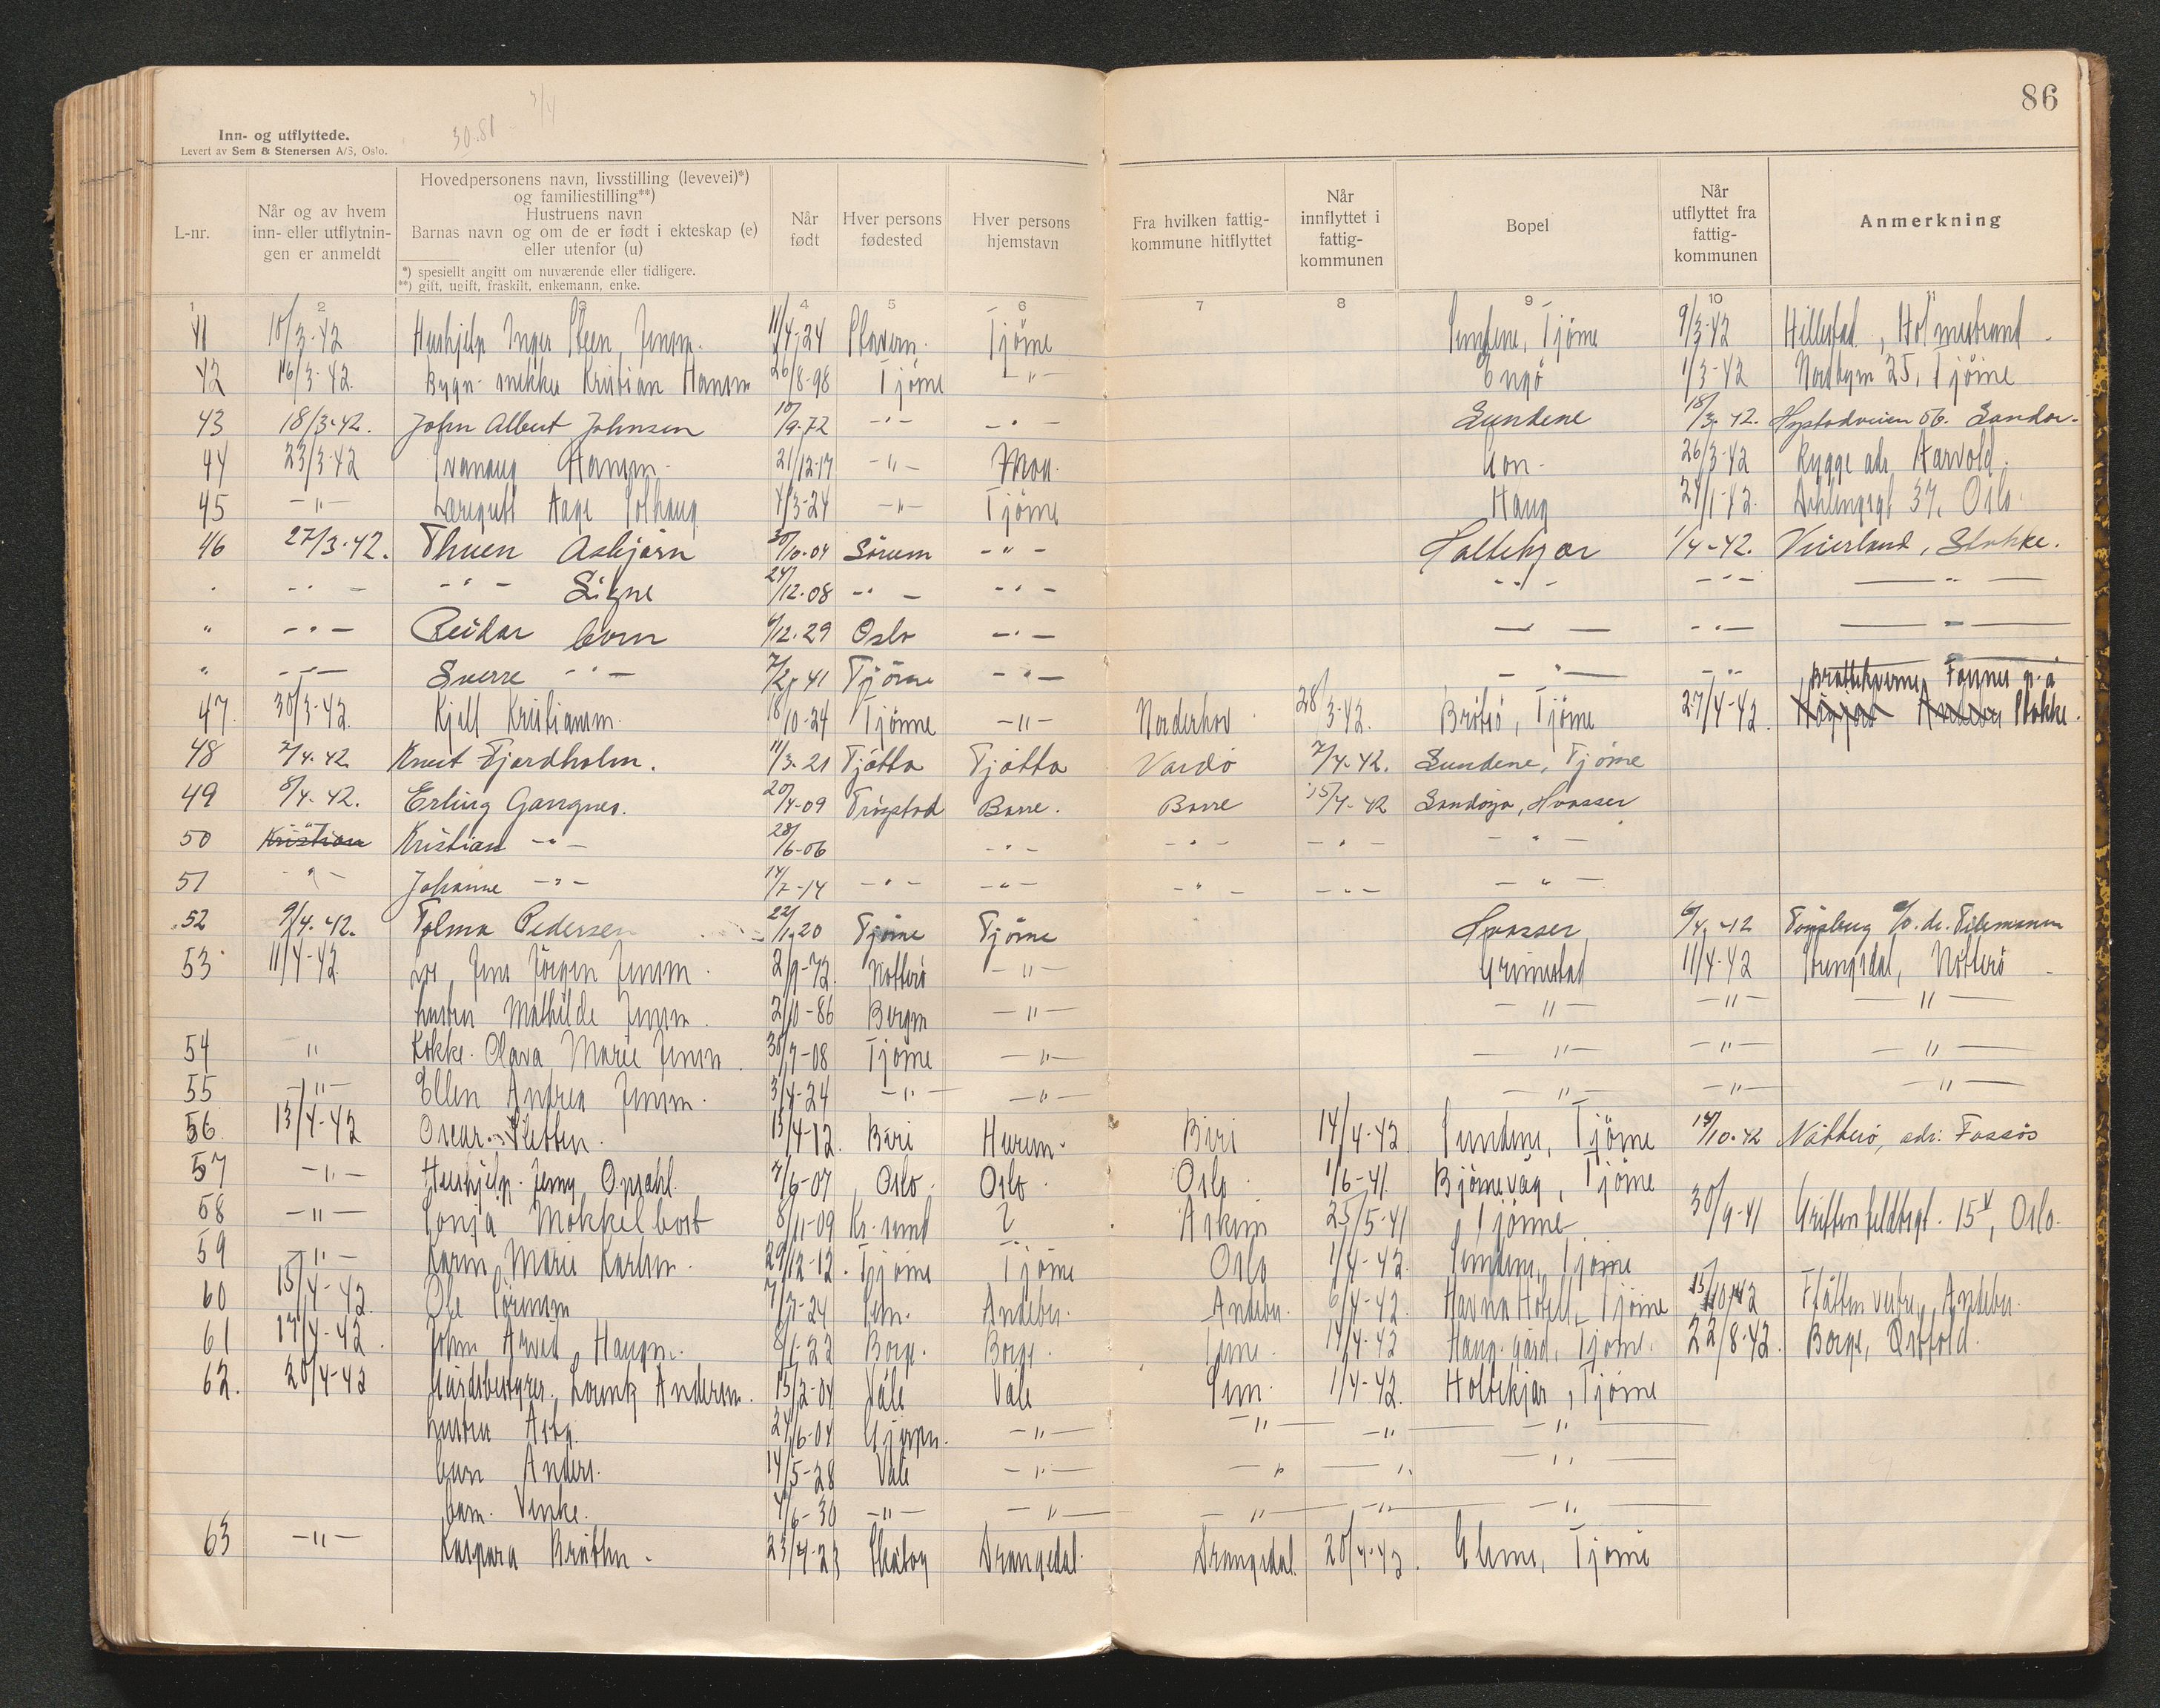 86
30.81 7/4
Inn- og utflyttede.
Levert av Sem & Stenersen A/S, Oslo.
L-nr.
Når og av hvem inn- eller utflytnin-gen er anmeldt
Hovedpersonens navn, livsstilling (levevei)*)
og familiestilling**)
Hustruens navn
Barnas navn og om de er født i ekteskap (e)
eller utenfor (u)
*) spesiellt angitt om nuværende eller tidligere.
**) gift, ugift, fraskilt, enkemann, enke.
Når født
Hver persons fødested
Hver persons hjemstavn
Fra hvilken fattig-kommune hitflyttet
Når innflyttet i fattig-kommunen
Bopel
Når utflyttet fra fattig-kommunen
Anmerkning
1 2 3 4 5 6 7 8 9 10 11
41 10/3-42 Hushjelp Inger Steen Jensen. 11/4-24 Stavern. Tjöme Sundene, Tjöme 9/3-42 Hillestad, Holmestrand.
42 16/3-42. Bygn. snekker Kristian Hansen 26/8-98 Tjöme -"- Engö 1/3-42 Nordbyen 25, Tjöme
43 18/3-42. John Albert Johnsen 10/9-72 -"- -"- Sundene 18/3-42. Hystadveien 56. Sandar.
44 23/3-42 Svanaug Hansen. 21/12-17 -"- Mon. 26/3-42 Rygge adr. Aarvold.
45 -"- Læregutt Aage Solhaug 4/3-24 -"- Tjöme Haug 24/1-42. 37, Oslo.
46 27/3-42. Thuen Asbjørn 30/10-04 Sörum -"- Holtekjær 1/4-42. Veierland, Stokke.
" -"- -"- Signe 24/12-08 -"- -"- -"- -"- -"-
" -"- Reidar barn 6/12-29 Oslo -"- -"- -"- -"-
" -"- Sverre -"- 7/2-41 Tjöme -"- -"- -"- -"-
47. 30/3-42. Kjell Kristiansen. 18/10-24 Tjöme -"- Norderhov 28/3-42. Brötsö, Tjöme 27/4-42 Stokke.
48 7/4-42. Knut Fjordholm. 11/3-21 Tjötta Tjötta Vardö 7/4-42. Sundene, Tjöme
49 8/4-42. Erling Gangnes. 20/4-09 Trögstad Borre. Borre 15/4-42 Sandöya, Hvasser
50 Kristian Kristian -"- 28/6-06 -"- -"- -"- -"-
51 -"- Johanne -"- 14/7-14 -"- -"- -"- -"- -"-
52 9/4-42. Tolma Pedersen 22/1-20 Tjöme Tjöme Hvasser 6/4-42 Tönsberg c/o. dr. Tilemann
53 11/4-42. Los, Jens Jörgen Jensen. 2/9-72. Nötterö -"- Grimestad 11/4-42 Strengsdal, Nötterö
hustru Mathilde Jensen. 2/10-86 Bergen -"- -"- -"- -"-
54 " Kokke. Olava Marie Jensen 30/7-08 Tjöme -"- -"- -"- -"-
55 -"- Ellen Andrea Jensen. 3/4-24 -"- -"- -"- -"- -"-
56. 13/4-42 Oscar Sletten. 13/4-12. Biri Hurum. Biri 14/4-42 Sundene, Tjöme 14/10-42 Nötterö, adr. Fossös
57 -"- Hushjelp. Jenny Opsahl. 7/6-07 Oslo. Oslo. Oslo. 1/6-41. Björnevåg, Tjöme
58 -"- Sonja Mökkelbost 8/11-09 Kr. sund ? Askim 25/5-41 Tjöme 30/9-41 Griffenfeldtsgt. 15 , Oslo.
59 -"- Karen Marie Karlsen. 29/12-12. Tjöme Tjöme Oslo 1/4-42. Sundene, Tjöme
60 15/4-42. Ole Sörensen 7/7-24 Sem. Andebu. Andebu. 6/4-42. Havna Hotell, Tjöme 15/10-42 Flåtten vestre, Andebu.
61 17/4-42. John Arvid Haugen. 8/1-22 Borge. Borge. 14/4-42 Haug gård, Tjöme. 22/8-42. Borge, Östfold.
62. 20/4-42 Gårdsbestyrer Lorentz Andersen. 15/2-04 Våle Våle Sem. 1/4-42. Holtekjær, Tjöme
hustru Asta. 24/6-04 Gjerpen. -"- -"- -"- -"-
barn Anders. 14/5-28 Våle -"- -"- -"- -"-
barn. Vinke. 4/6-30 -"- -"- -"- -"- -"-
63 -"- Kaspara Bråthen. 23/4-23 Skåtöy Drangedal. Drangedal. 20/4-42. Glenne, Tjöme